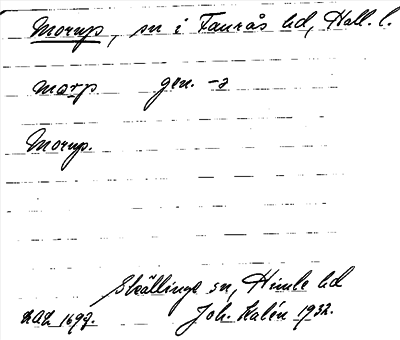 Morup, sn i Faurås hd, Hall. l.
morp gen. -s
Morup.
Skällinge sn, Himle hd
Joh. Kalén 1932.